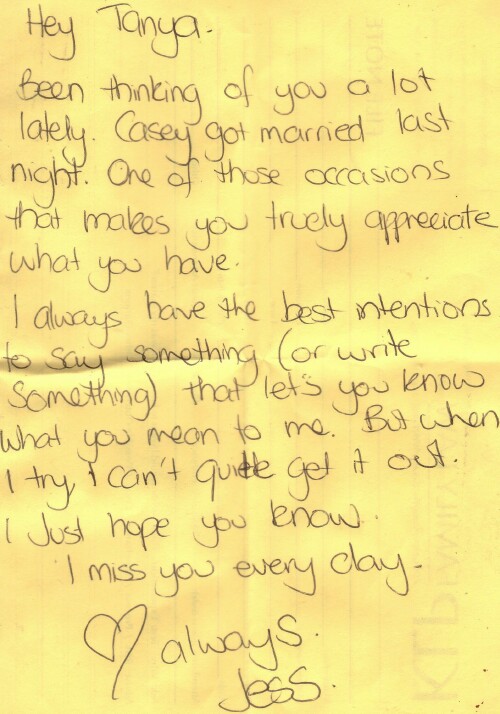 Hey Tanya.
Been thinking of you a lot
lately. Casey got married last
night. One of those occasions
that makes you truely appreciate
what you have.
I always have the best intentions
to say something (or write
something) that let's you know
what you mean to me. But when
I try, I can't quite get it out.
I Just hope you know.
I miss you every day.
always.
Jess.